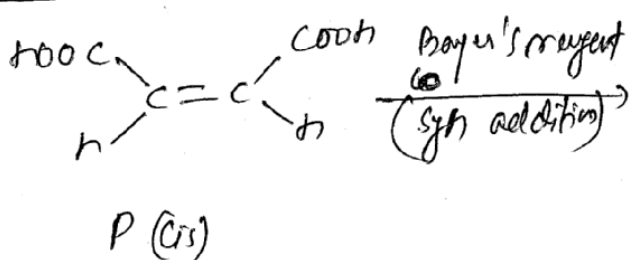 HOOC COOH Bayer's reagent
C=C (Syn addition)
H H
P (Cis)